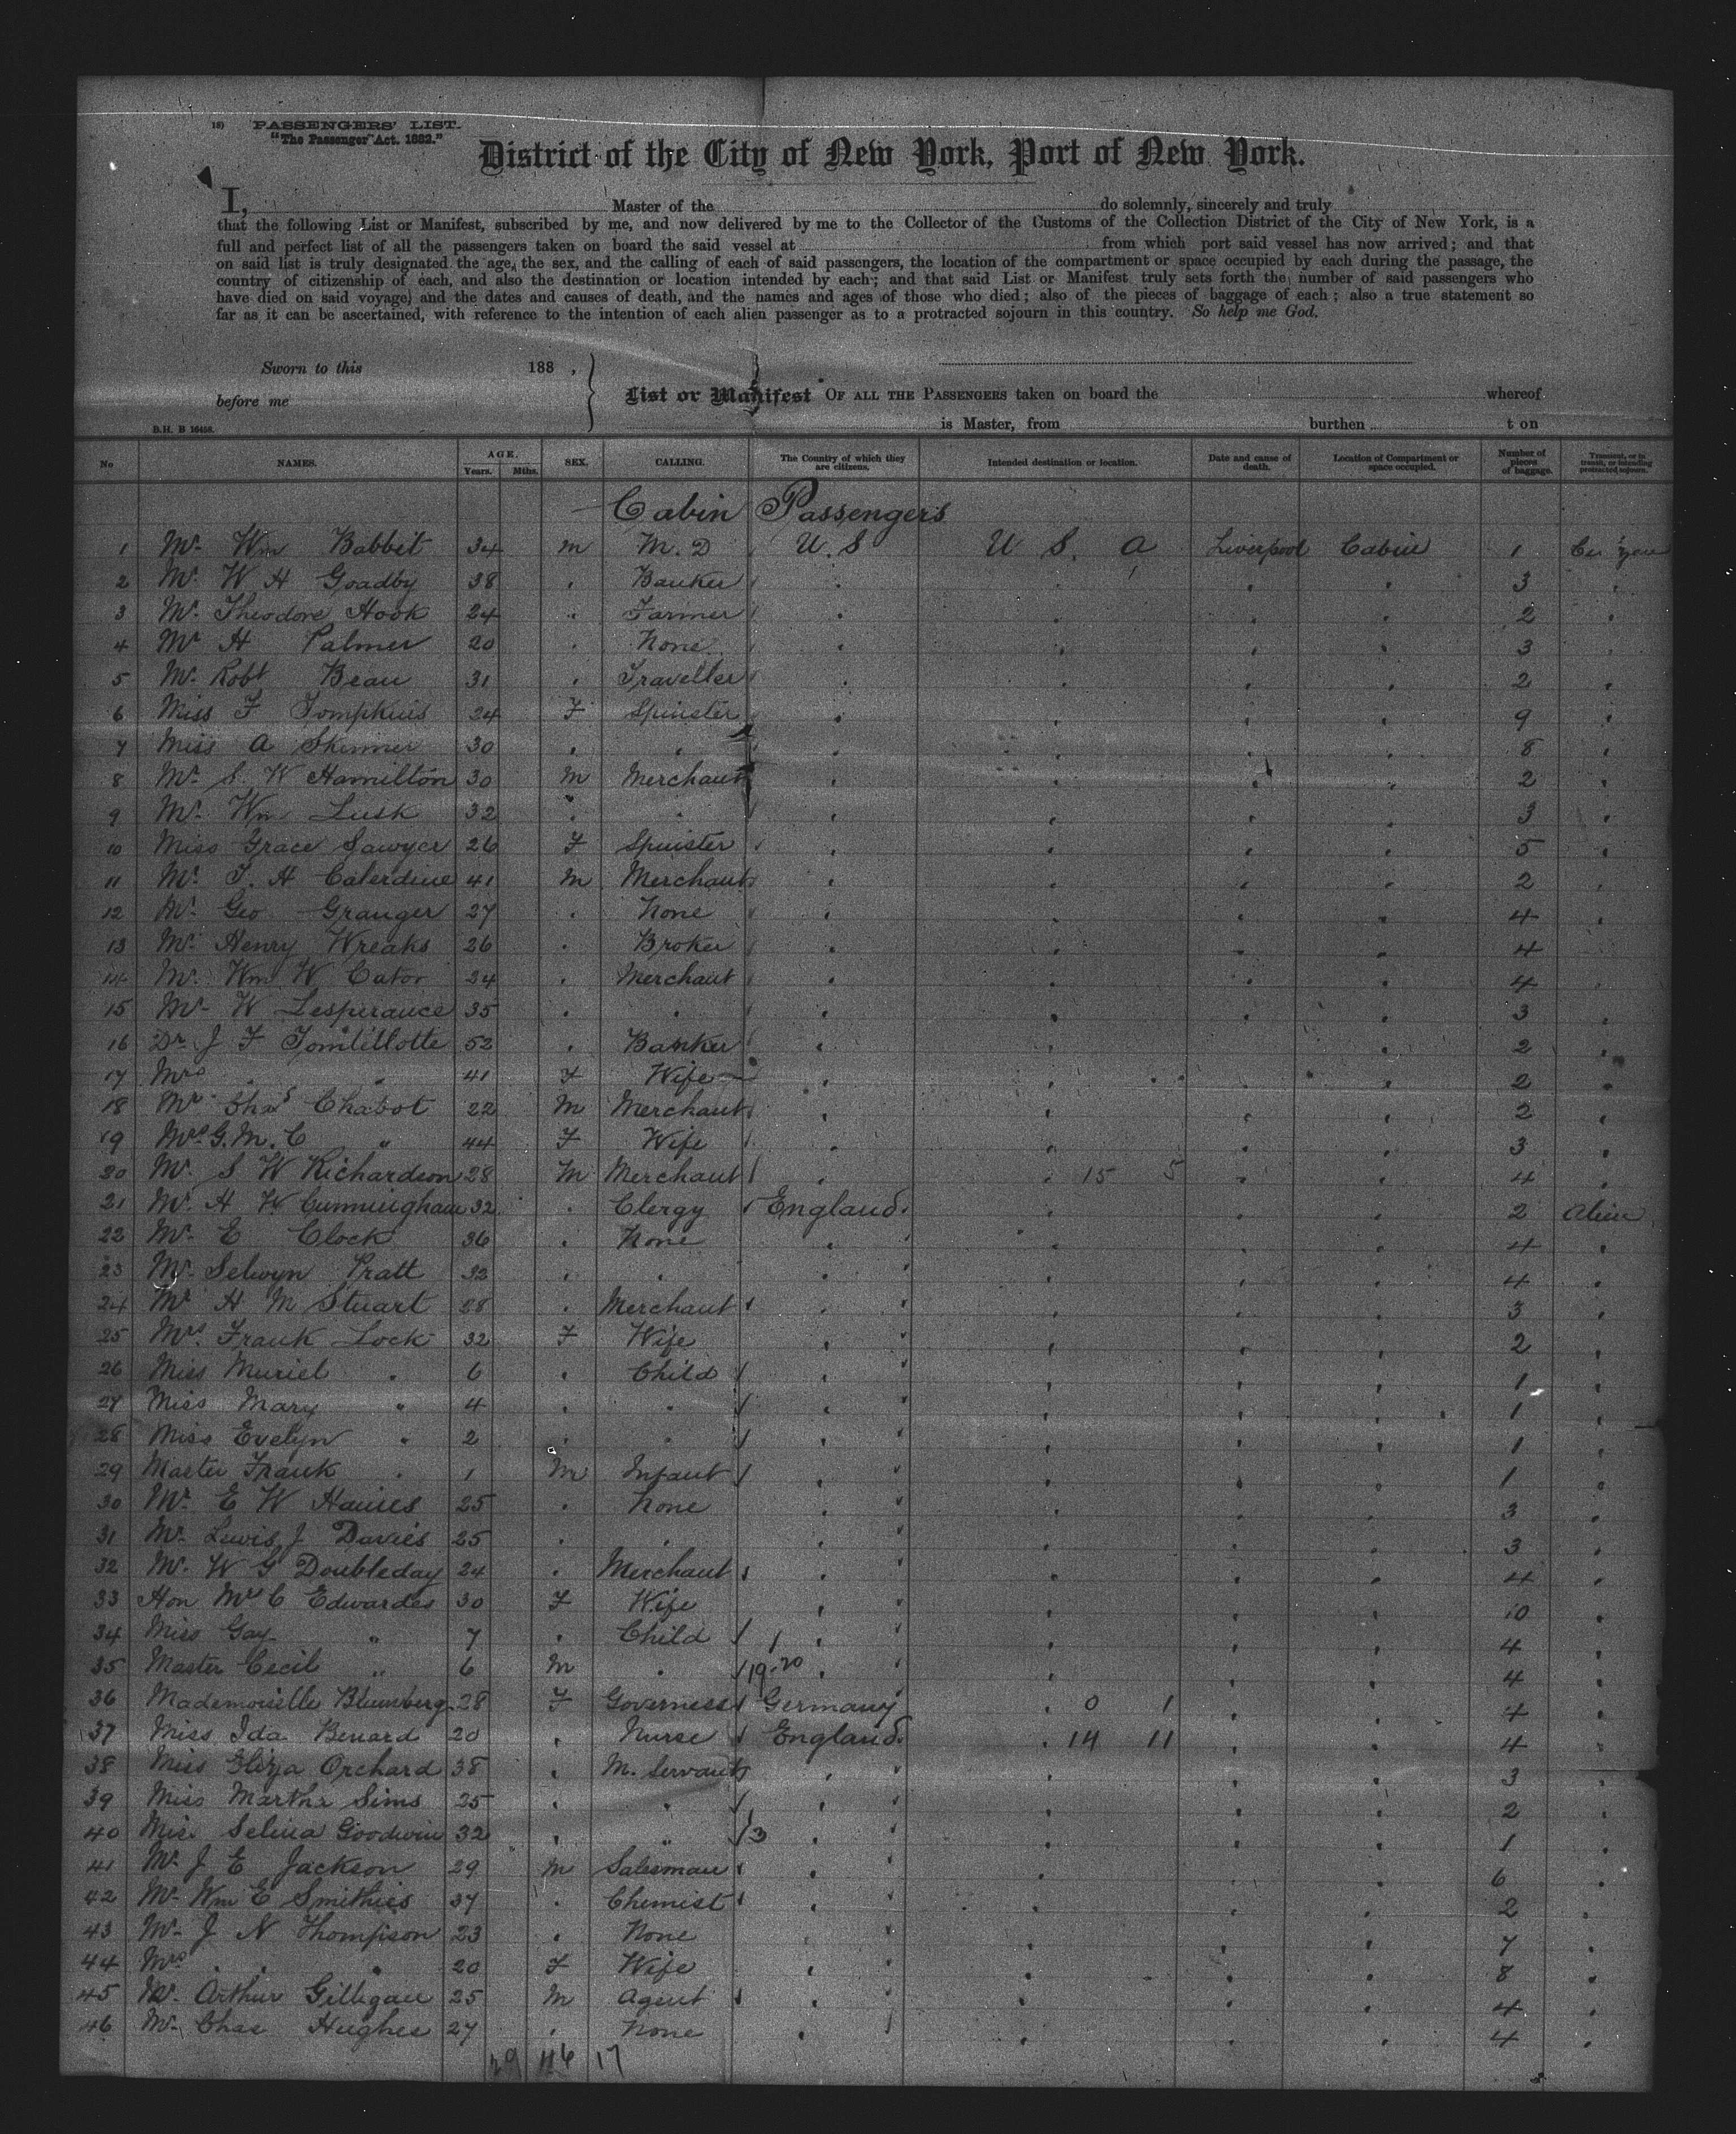 18) PASSENGERS' LIST.
"The Passenger Act. 1882."
District of the City of New York, Port of New York.
I, Master of the do solemnly, sincerely and truly
that the following List or Manifest, subscribed by me, and now delivered by me to the Collector of the Customs of the Collection District of the City of New York, is a
full and perfect list of all the passengers taken on board the said vessel at from which port said vessel has now arrived; and that
on said list is truly designated the age, the sex, and the calling of each of said passengers, the location of the compartment or space occupied by each during the passage, the
country of citizenship of each, and also the destination or location intended by each; and that said List or Manifest truly sets forth the number of said passengers who
have died on said voyage, and the dates and causes of death, and the names and ages of those who died; also of the pieces of baggage of each; also a true statement so
far as it can be ascertained, with reference to the intention of each alien passenger as to a protracted sojourn in this country. So help me God.
Sworn to this 188 ,
before me
List or Manifest OF ALL THE PASSENGERS taken on board the whereof
is Master, from burthen t on
B.H. B 16458.
No NAMES. AGE. Years. Mths. SEX. CALLING. The Country of which they are citizens. Intended destination or location. Date and cause of death. Location of Compartment or space occupied. Number of pieces of baggage. Transient, or in transit, or intending protracted sojourn.
Cabin Passengers
1 Mr Wm Babbit 34 M M.D U.S U S. A Liverpool Cabin 1
2 Mr W H Goadby 38 " Banker " " " " 3 "
3 Mr Theodore Hook 24 " Farmer " " " " 2 "
4 Mr H Palmer 20 " None " " " " 3 "
5 Mr Robt Beau 31 " Traveller " " " " 2 "
6 Miss F Tompkins 24 F Spinster " " " " 9 "
7 Miss A Skinner 30 " " " " " " 8 "
8 Mr S. W Hamilton 30 M Merchant " " " " 2 "
9 Mr Wm Lusk 32 " " " " " " 3 "
10 Miss Grace Sawyer 26 F Spinster " " " " 5 "
11 Mr T. H Calerdine 41 M Merchant " " " " 2 "
12 Mr Geo Granger 27 " None " " " " 4 "
13 Mr Henry Wreaks 26 " Broker " " " " 4 "
14 Mr Wm W Cator 24 " Merchant " " " " 4 "
15 Mr W Lesperance 35 " " " " " " 3 "
16 Dr J F Tomlillotte 52 " Banker " " " " 2 "
17 Mrs " " 41 F Wife " " " " 2 "
18 Mr Chas Chabot 22 M Merchant " " " " 2 "
19 Mrs G. M. C " 44 F Wife " " " " 3 "
20 Mr S W Richardson 28 M Merchant " " 15 5 " " 4 "
21 Mr H W Cunningham 32 " Clergy England " " " 2 Alien
22 Mr E Clock 36 " None " " " " 4 "
23 Mr Selwyn Pratt 32 " " " " " " 4 "
24 Mr H M Stuart 28 " Merchant " " " " 3 "
25 Mrs Frank Lock 32 F Wife " " " " 2 "
26 Miss Muriel " 6 " Child " " " " 1 "
27 Miss Mary " 4 " " " " " " 1 "
28 Miss Evelyn " 2 " " " " " " 1 "
29 Master Frank " 1 M Infant " " " " 1 "
30 Mr E W Haines 25 " None " " " " 3 "
31 Mr Lewis J Davies 25 " " " " " " 3 "
32 Mr W G Doubleday 24 " Merchant " " " " 4 "
33 Hon Mrs C Edwardes 30 F Wife " " " " 10 "
34 Miss Gay " 7 " Child " " " " 4 "
35 Master Cecil " 6 M " 19-20 " " " " 4 "
36 Mademoiselle Blumberg 28 F Governess Germany " 0 1 " " 4 "
37 Miss Ida Benard 20 " Nurse England " 14 11 " " 4 "
38 Miss Eliza Orchard 38 " M. Servant " " " " 3 "
39 Miss Martha Sims 25 " " " " " " 2 "
40 Miss Selina Goodwin 32 " " 3 " " " " 1 "
41 Mr J E Jackson 29 M Salesman " " " " 6 "
42 Mr Wm E Smithies 37 " Chemist " " " " 2 "
43 Mr J N Thompson 23 " None " " " " 7 "
44 Mrs " " 20 F Wife " " " " 8 "
45 Mr Arthur Gilligan 25 M Agent " " " " 4 "
46 Mr Chas Hughes 27 " None " " " " 4 "
29 46 17